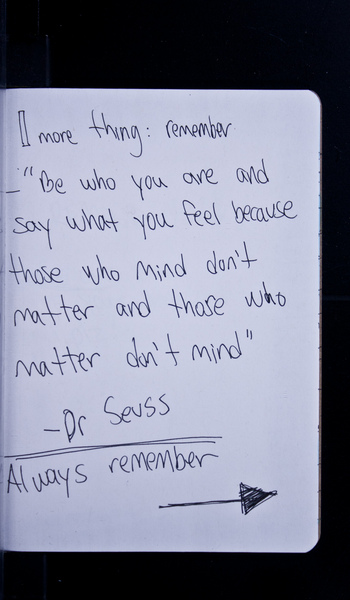 1 more thing: remember
- "Be who you are and
say what you feel because
those who mind don't
matter and those who
matter don't mind"
-Dr Seuss
Always remember